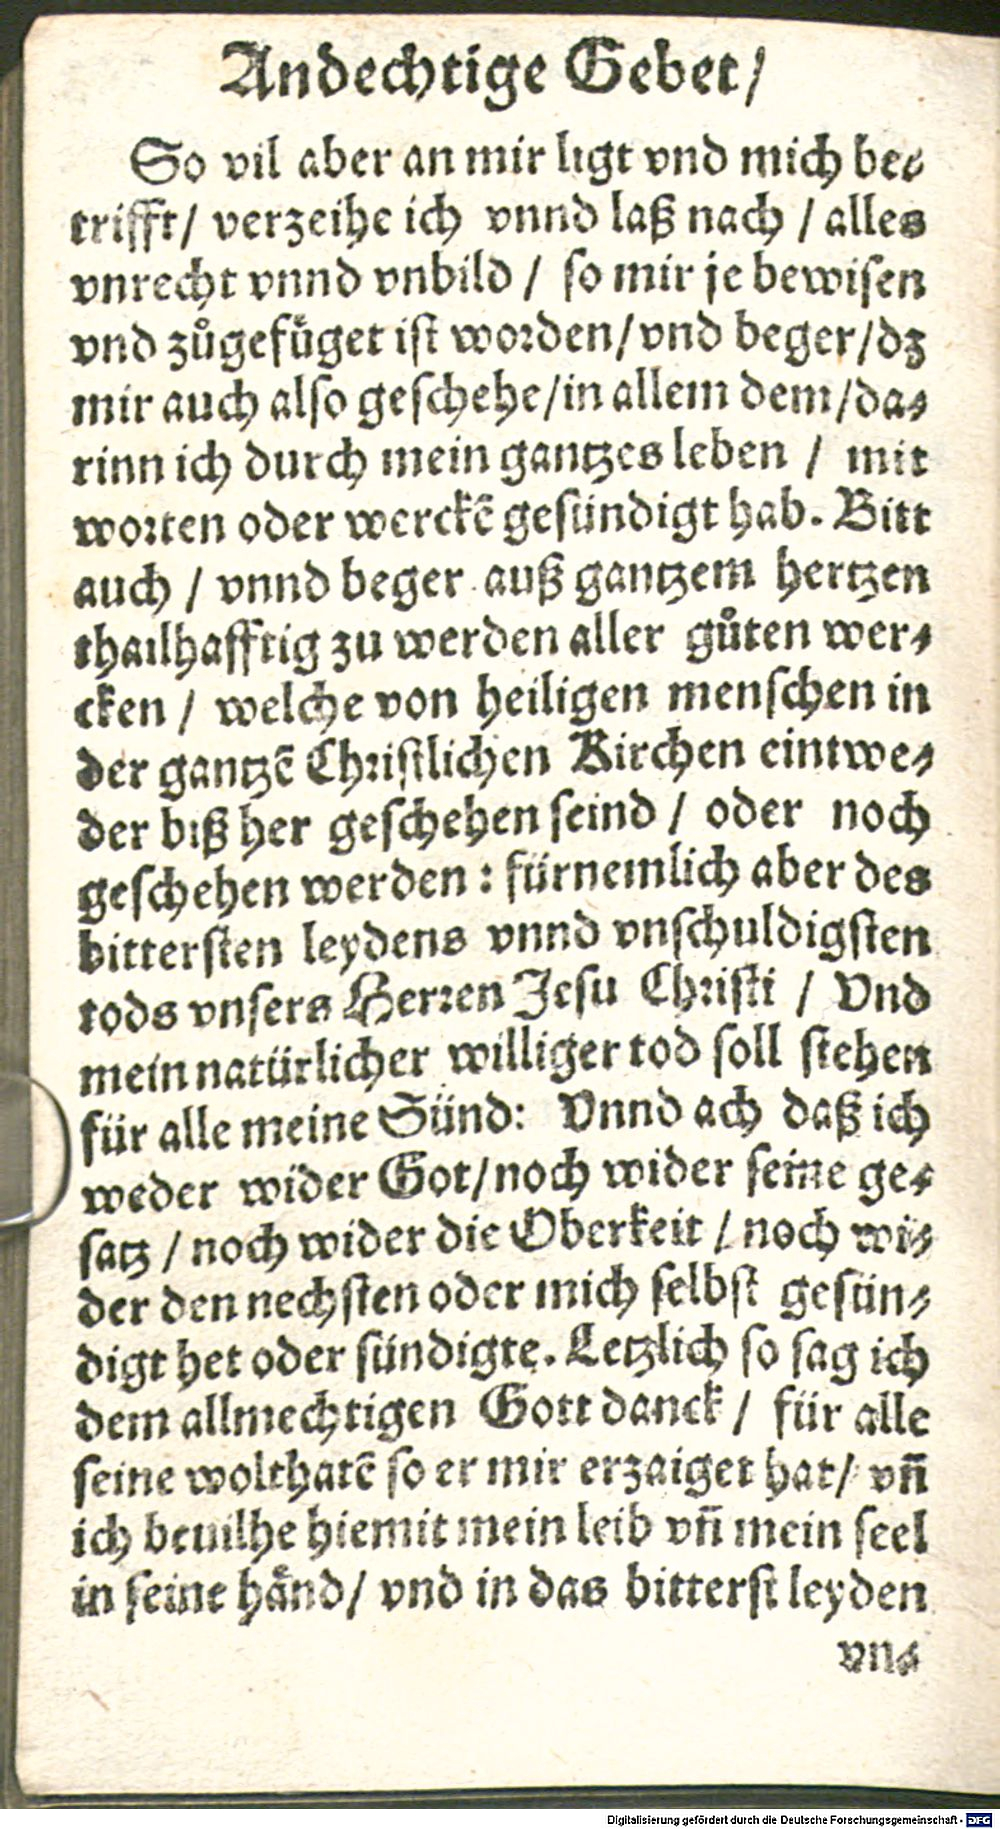 Andechtige Gebet/
So vil aber an mir ligt vnd mich be⸗
trifft/ verzeihe ich vnnd laß nach / alles
vnrecht vnnd vnbild / so mir je bewisen
vnd zůgefüget ist worden/vnd beger/dz
mir auch also geschehe/in allem dem/da⸗
rinn ich durch mein gantzes leben / mit
worten oder werckē gesündigt hab. Bitt
auch / vnnd beger auß gantzem hertzen
thailhafftig zu werden aller gůten wer⸗
cken / welche von heiligen menschen in
der gantzē Christlichen Kirchen eintwe⸗
der biß her geschehen seind / oder noch
geschehen werden : fürnemlich aber des
bittersten leydens vnnd vnschuldigsten
tods vnsers Herren Jesu Christi / Vnd
mein natürlicher williger tod soll stehen
für alle meine Sünd: Vnnd ach daß ich
weder wider Got/noch wider seine ge⸗
satz / noch wider die Oberkeit / noch wi⸗
der den nechsten oder mich selbst gesün⸗
digt het oder sündigte. Letzlich so sag ich
dem allmechtigen Gott danck / für alle
seine wolthatē so er mir erzaiget hat/ vñ
ich beuilhe hiemit mein leib vñ mein seel
in seine hånd/ vnd in das bitterst leyden
vn⸗
Digitalisierung gefördert durch die Deutsche Forschungsgemeinschaft - DFG